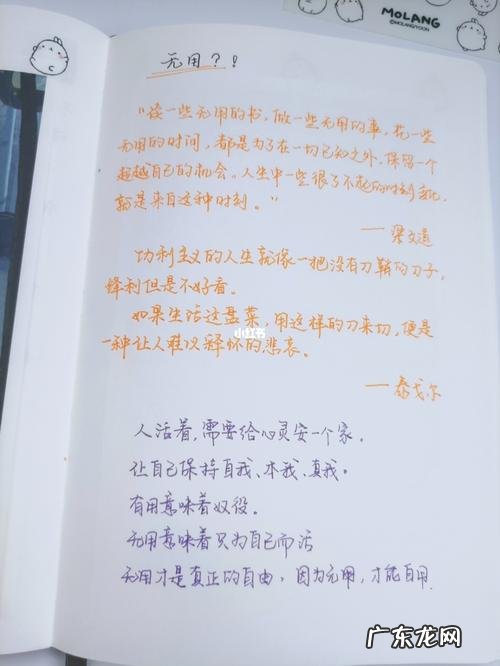 MOLANG
@MOLANGTOON
无用？！
“读一些无用的书，做一些无用的事，花一些
无用的时间，都是为了在一切已知之外，保留一个
超越自己的机会。人生中一些很了不起的时刻变化，
就是来自这种时刻。”
——梁文道
功利主义的人生就像一把没有刀鞘的刀子，
锋利但是不好看。
如果生活这盘菜，用这样的刀来切，便是
一种让人难以释怀的悲哀。
小红书
——泰戈尔
人活着，需要给心灵安一个家。
让自己保持自我、本我、真我。
有用意味着奴役。
无用意味着只为自己而活
无用才是真正的自由，因为无用，才能自用
广东龙网